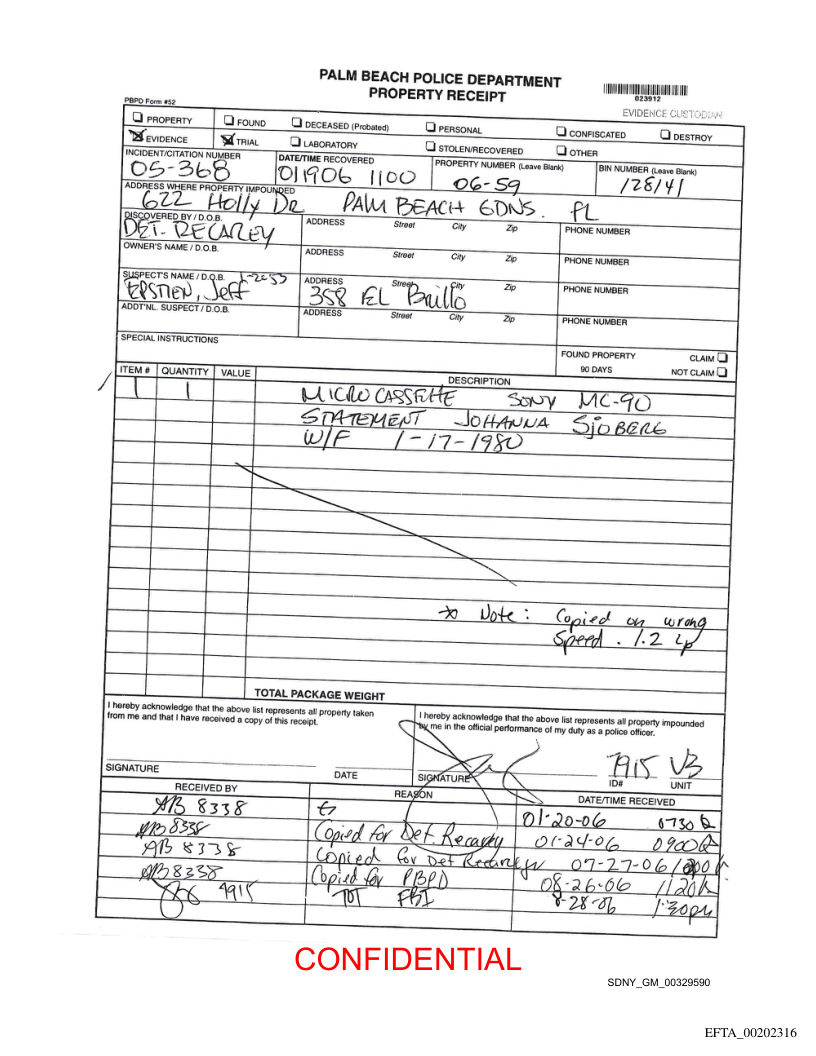 PALM BEACH POLICE DEPARTMENT
PROPERTY RECEIPT
023912
PBPD Form #52
EVIDENCE CUSTODIAN
PROPERTY FOUND DECEASED (Probated) PERSONAL CONFISCATED DESTROY
EVIDENCE TRIAL LABORATORY STOLEN/RECOVERED OTHER
INCIDENT/CITATION NUMBER DATE/TIME RECOVERED PROPERTY NUMBER (Leave Blank) BIN NUMBER (Leave Blank)
05-368 011906 1100 06-59 128/41
ADDRESS WHERE PROPERTY IMPOUNDED
622 Holly Dr PALM BEACH GDNS. FL
DISCOVERED BY / D.O.B. ADDRESS Street City Zip PHONE NUMBER
DET. RECAREY
OWNER'S NAME / D.O.B. ADDRESS Street City Zip PHONE NUMBER
SUSPECT'S NAME / D.O.B. 1-2053 ADDRESS Street City Zip PHONE NUMBER
EPSTIEN, Jeff 358 EL Brillo
ADDT'NL. SUSPECT / D.O.B. ADDRESS Street City Zip PHONE NUMBER
SPECIAL INSTRUCTIONS
FOUND PROPERTY CLAIM
90 DAYS NOT CLAIM
ITEM # QUANTITY VALUE DESCRIPTION
1 1 MICROCASSETTE SONY MC-90
STATEMENT JOHANNA SjOBERG
W/F 1-17-1980
* Note: Copied on wrong
Speed. 1.2 Lp
TOTAL PACKAGE WEIGHT
I hereby acknowledge that the above list represents all property taken
from me and that I have received a copy of this receipt.
I hereby acknowledge that the above list represents all property impounded
by me in the official performance of my duty as a police officer.
7915 V3
SIGNATURE DATE SIGNATURE ID# UNIT
RECEIVED BY REASON DATE/TIME RECEIVED
AB 8338 01-20-06 0730
AB 8338 Copied for Det Recarey 01-24-06 0900
AB 8338 Copied for Det Recarey 07-27-06
AB 8338 Copied for PBPD 08-26-06 1120h
TOT FBI 8-28-06 1:30pm
CONFIDENTIAL
SDNY_GM_00329590
EFTA_00202316